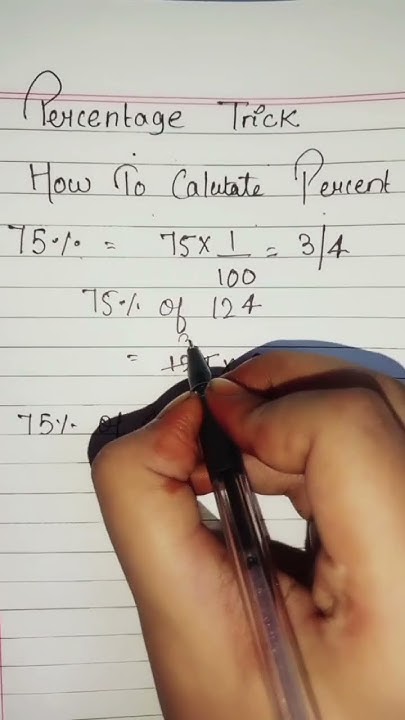 Percentage Trick
How To Calutate Percent
75% = 75 × 1/100 = 3/4
75% of 124
=
75% of